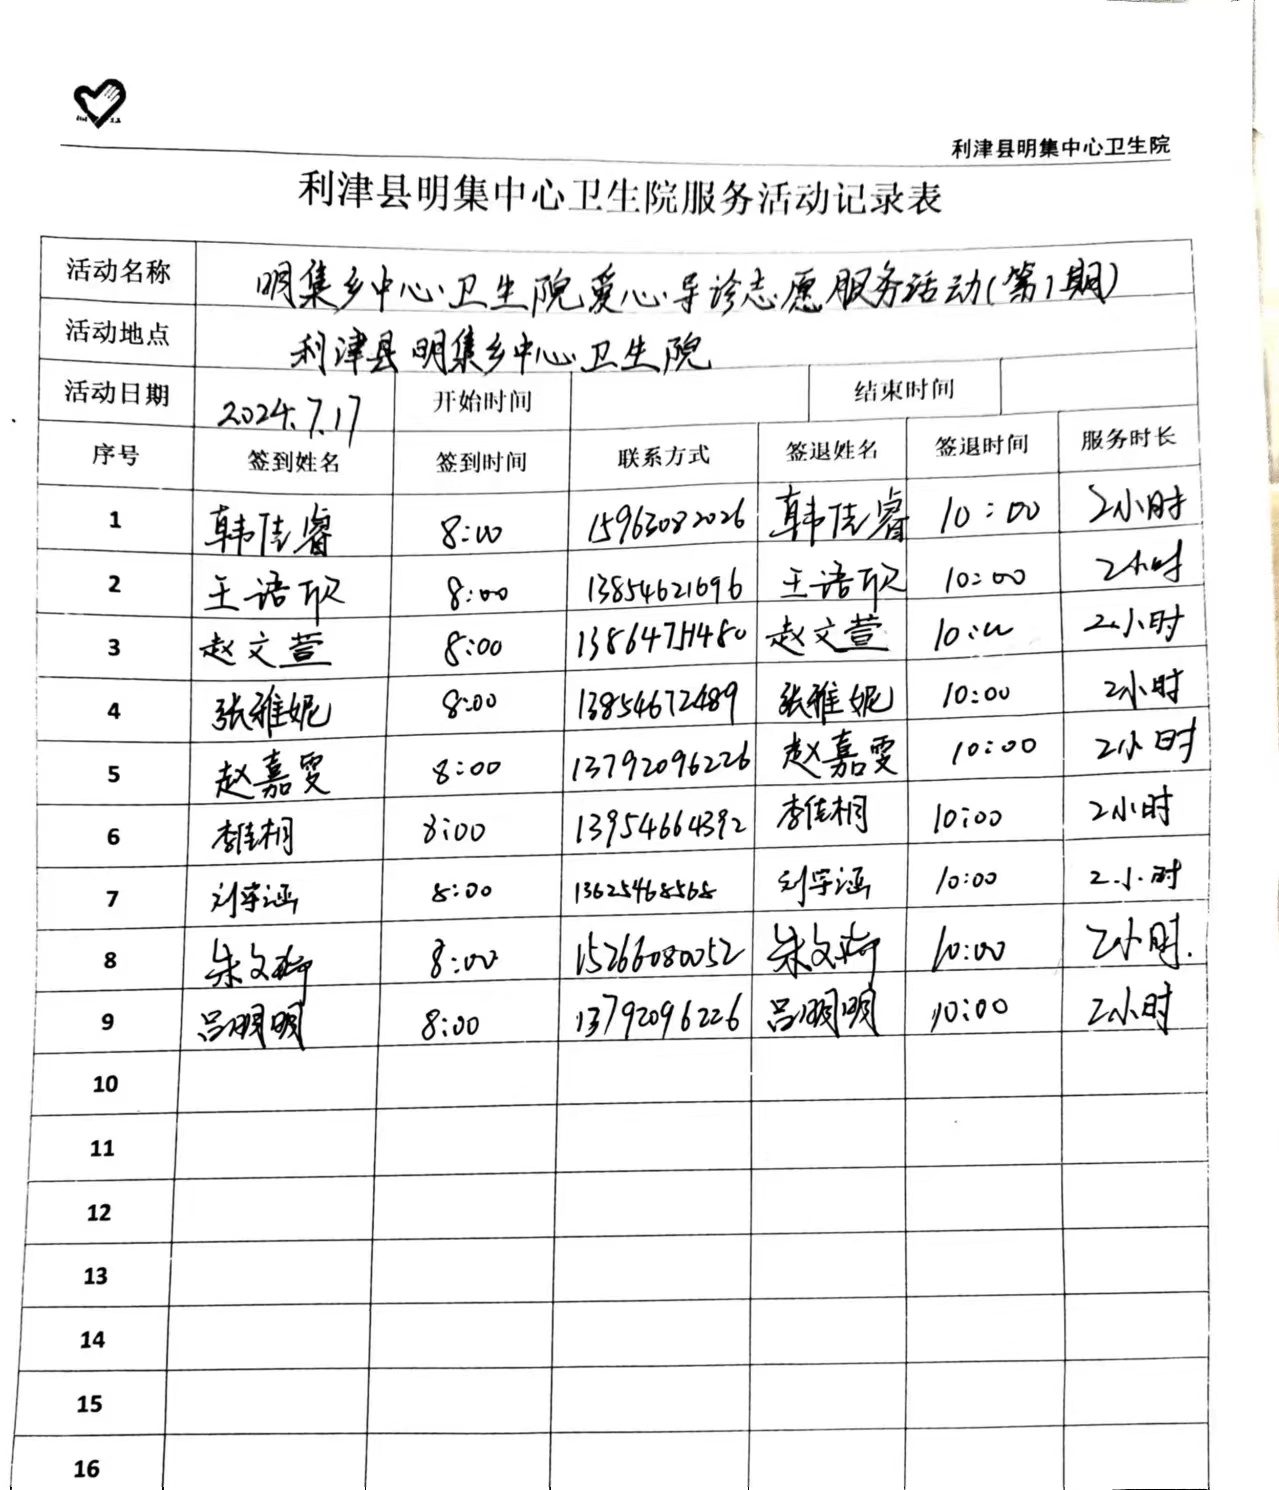 利津县明集中心卫生院
利津县明集中心卫生院服务活动记录表
活动名称 明集乡中心卫生院爱心导诊志愿服务活动(第1期)
活动地点 利津县明集乡中心卫生院
活动日期 2024.7.17 开始时间 结束时间
序号 签到姓名 签到时间 联系方式 签退姓名 签退时间 服务时长
1 韩佳睿 8:00 15963082026 韩佳睿 10:00 2小时
2 王语欣 8:00 13854621696 王语欣 10:00 2小时
3 赵文萱 8:00 赵文萱 10:00 2小时
4 张雅妮 8:00 13854672489 张雅妮 10:00 2小时
5 赵嘉雯 8:00 13792096226 赵嘉雯 10:00 2小时
6 李佳桐 8:00 13954664392 李佳桐 10:00 2小时
7 刘宇涵 8:00 13625468568 刘宇涵 10:00 2小时
8 朱文 8:00 15266080052 朱文 10:00 2小时.
9 吕明明 8:00 13792096226 吕明明 10:00 2小时
10
11
12
13
14
15
16